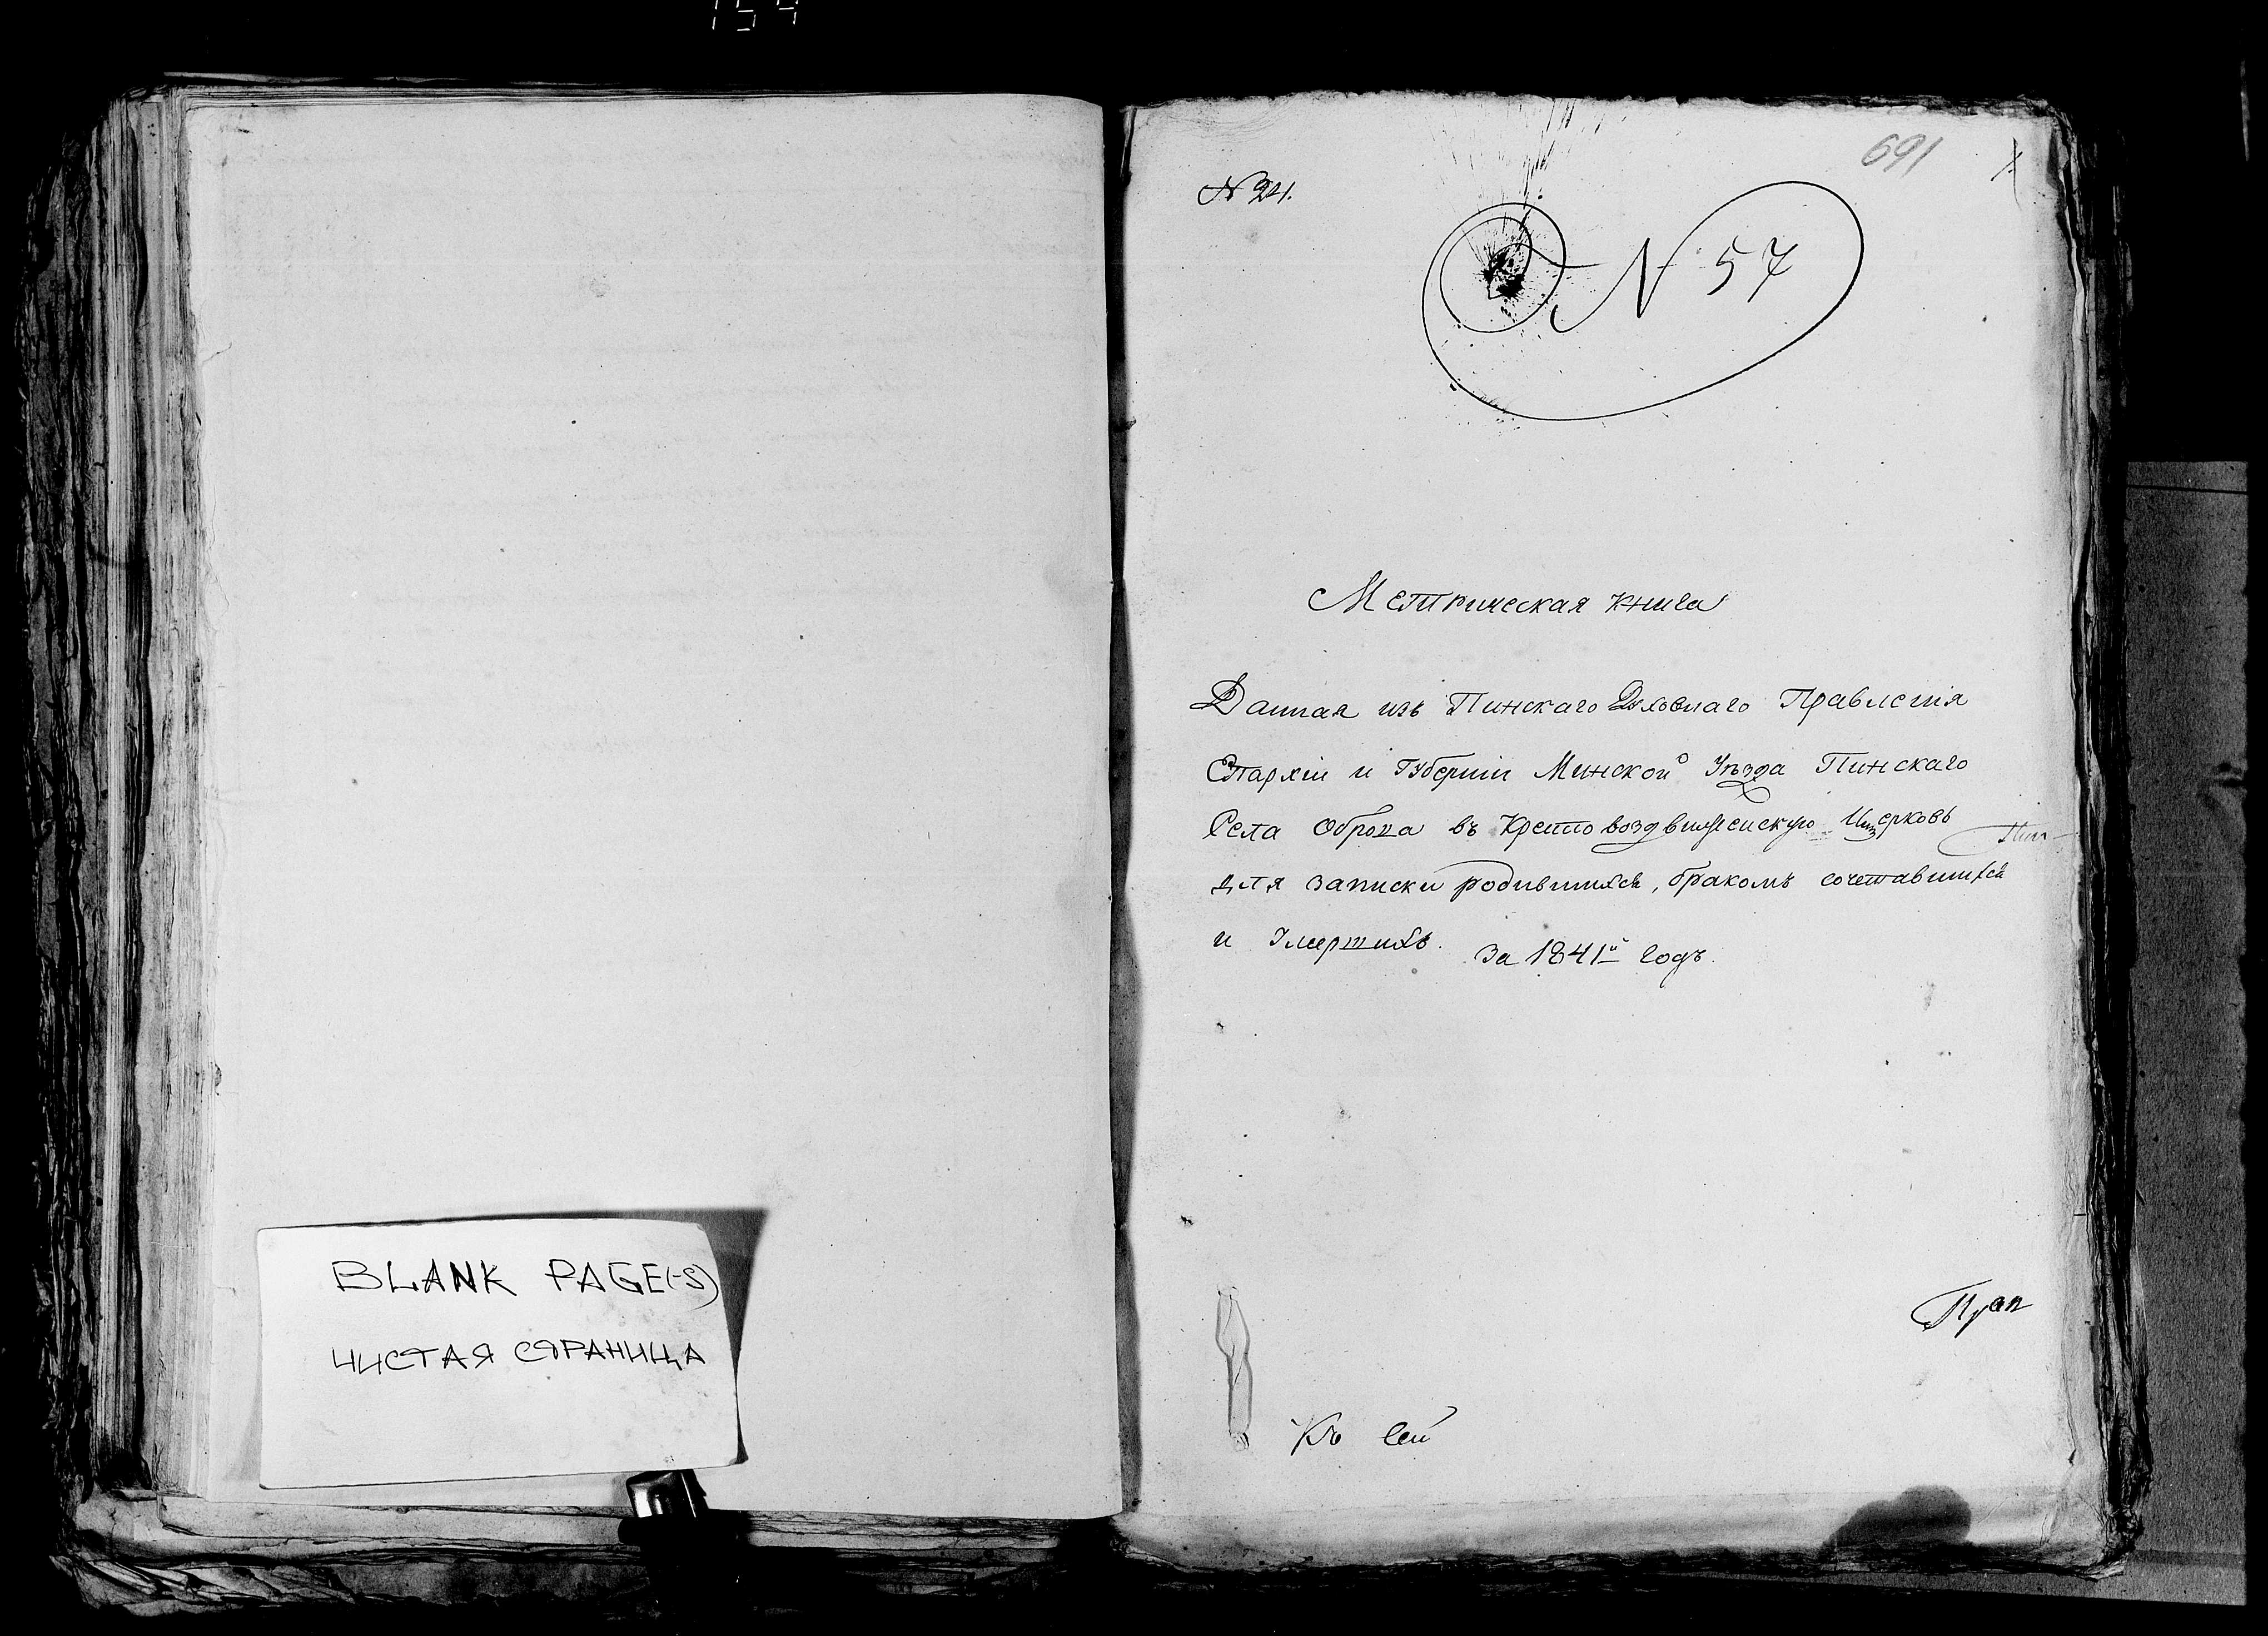 154
BLANK PAGE(-S)
ЧИСТАЯ СТРАНИЦА
691
1
N 24.
N 57
Метрическая книга
Данная изъ Пинскаго Духовнаго Правленія
Епархіи и Губерніи Минской Уѣзда Пинскаго
Села Оброва въ Кресто воздвиженскую Церковь
для записки родившихся, бракомъ сочетавшихся
и Умершихъ. За 1841й годъ.
Къ сей